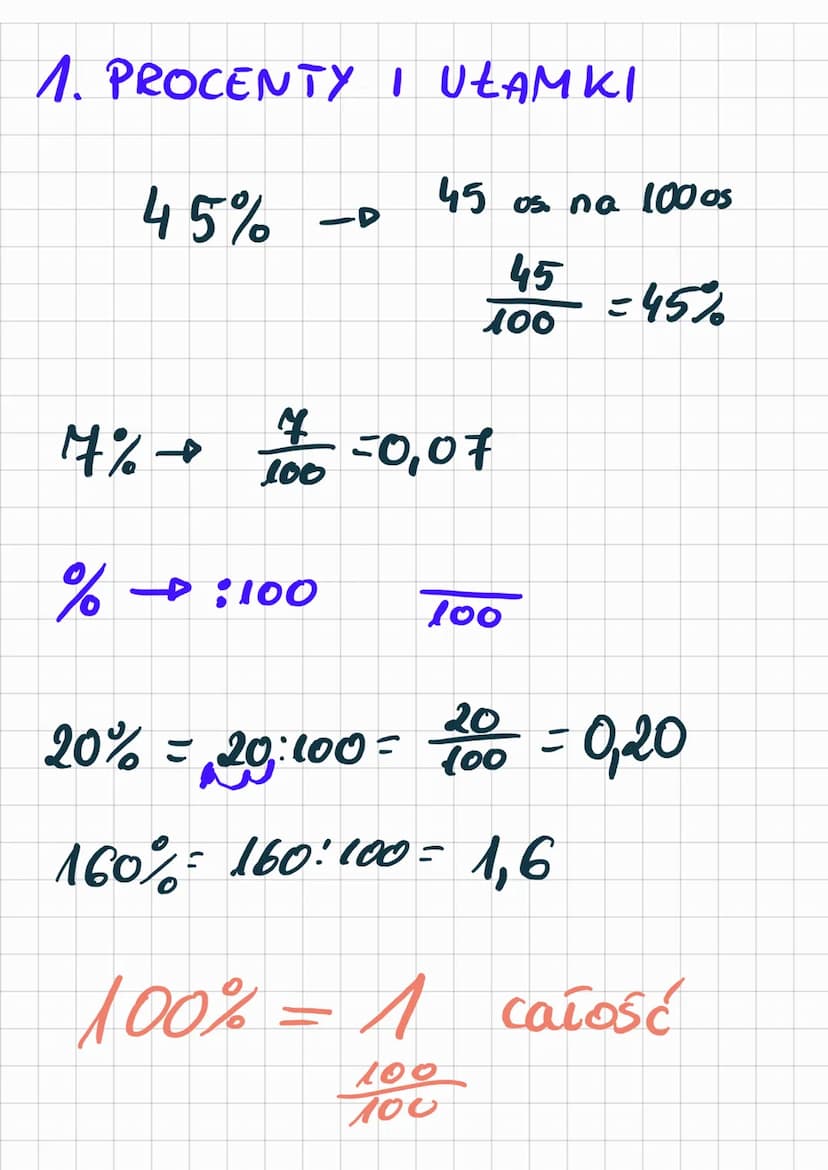 1. PROCENTY I UŁAMKI
45% → 45 os na 100 os
45/100 = 45%
7% → 7/100 = 0,07
% → :100 —/100
20% = 20:100 = 20/100 = 0,20
160% = 160:100 = 1,6
100% = 1 całość
100/100